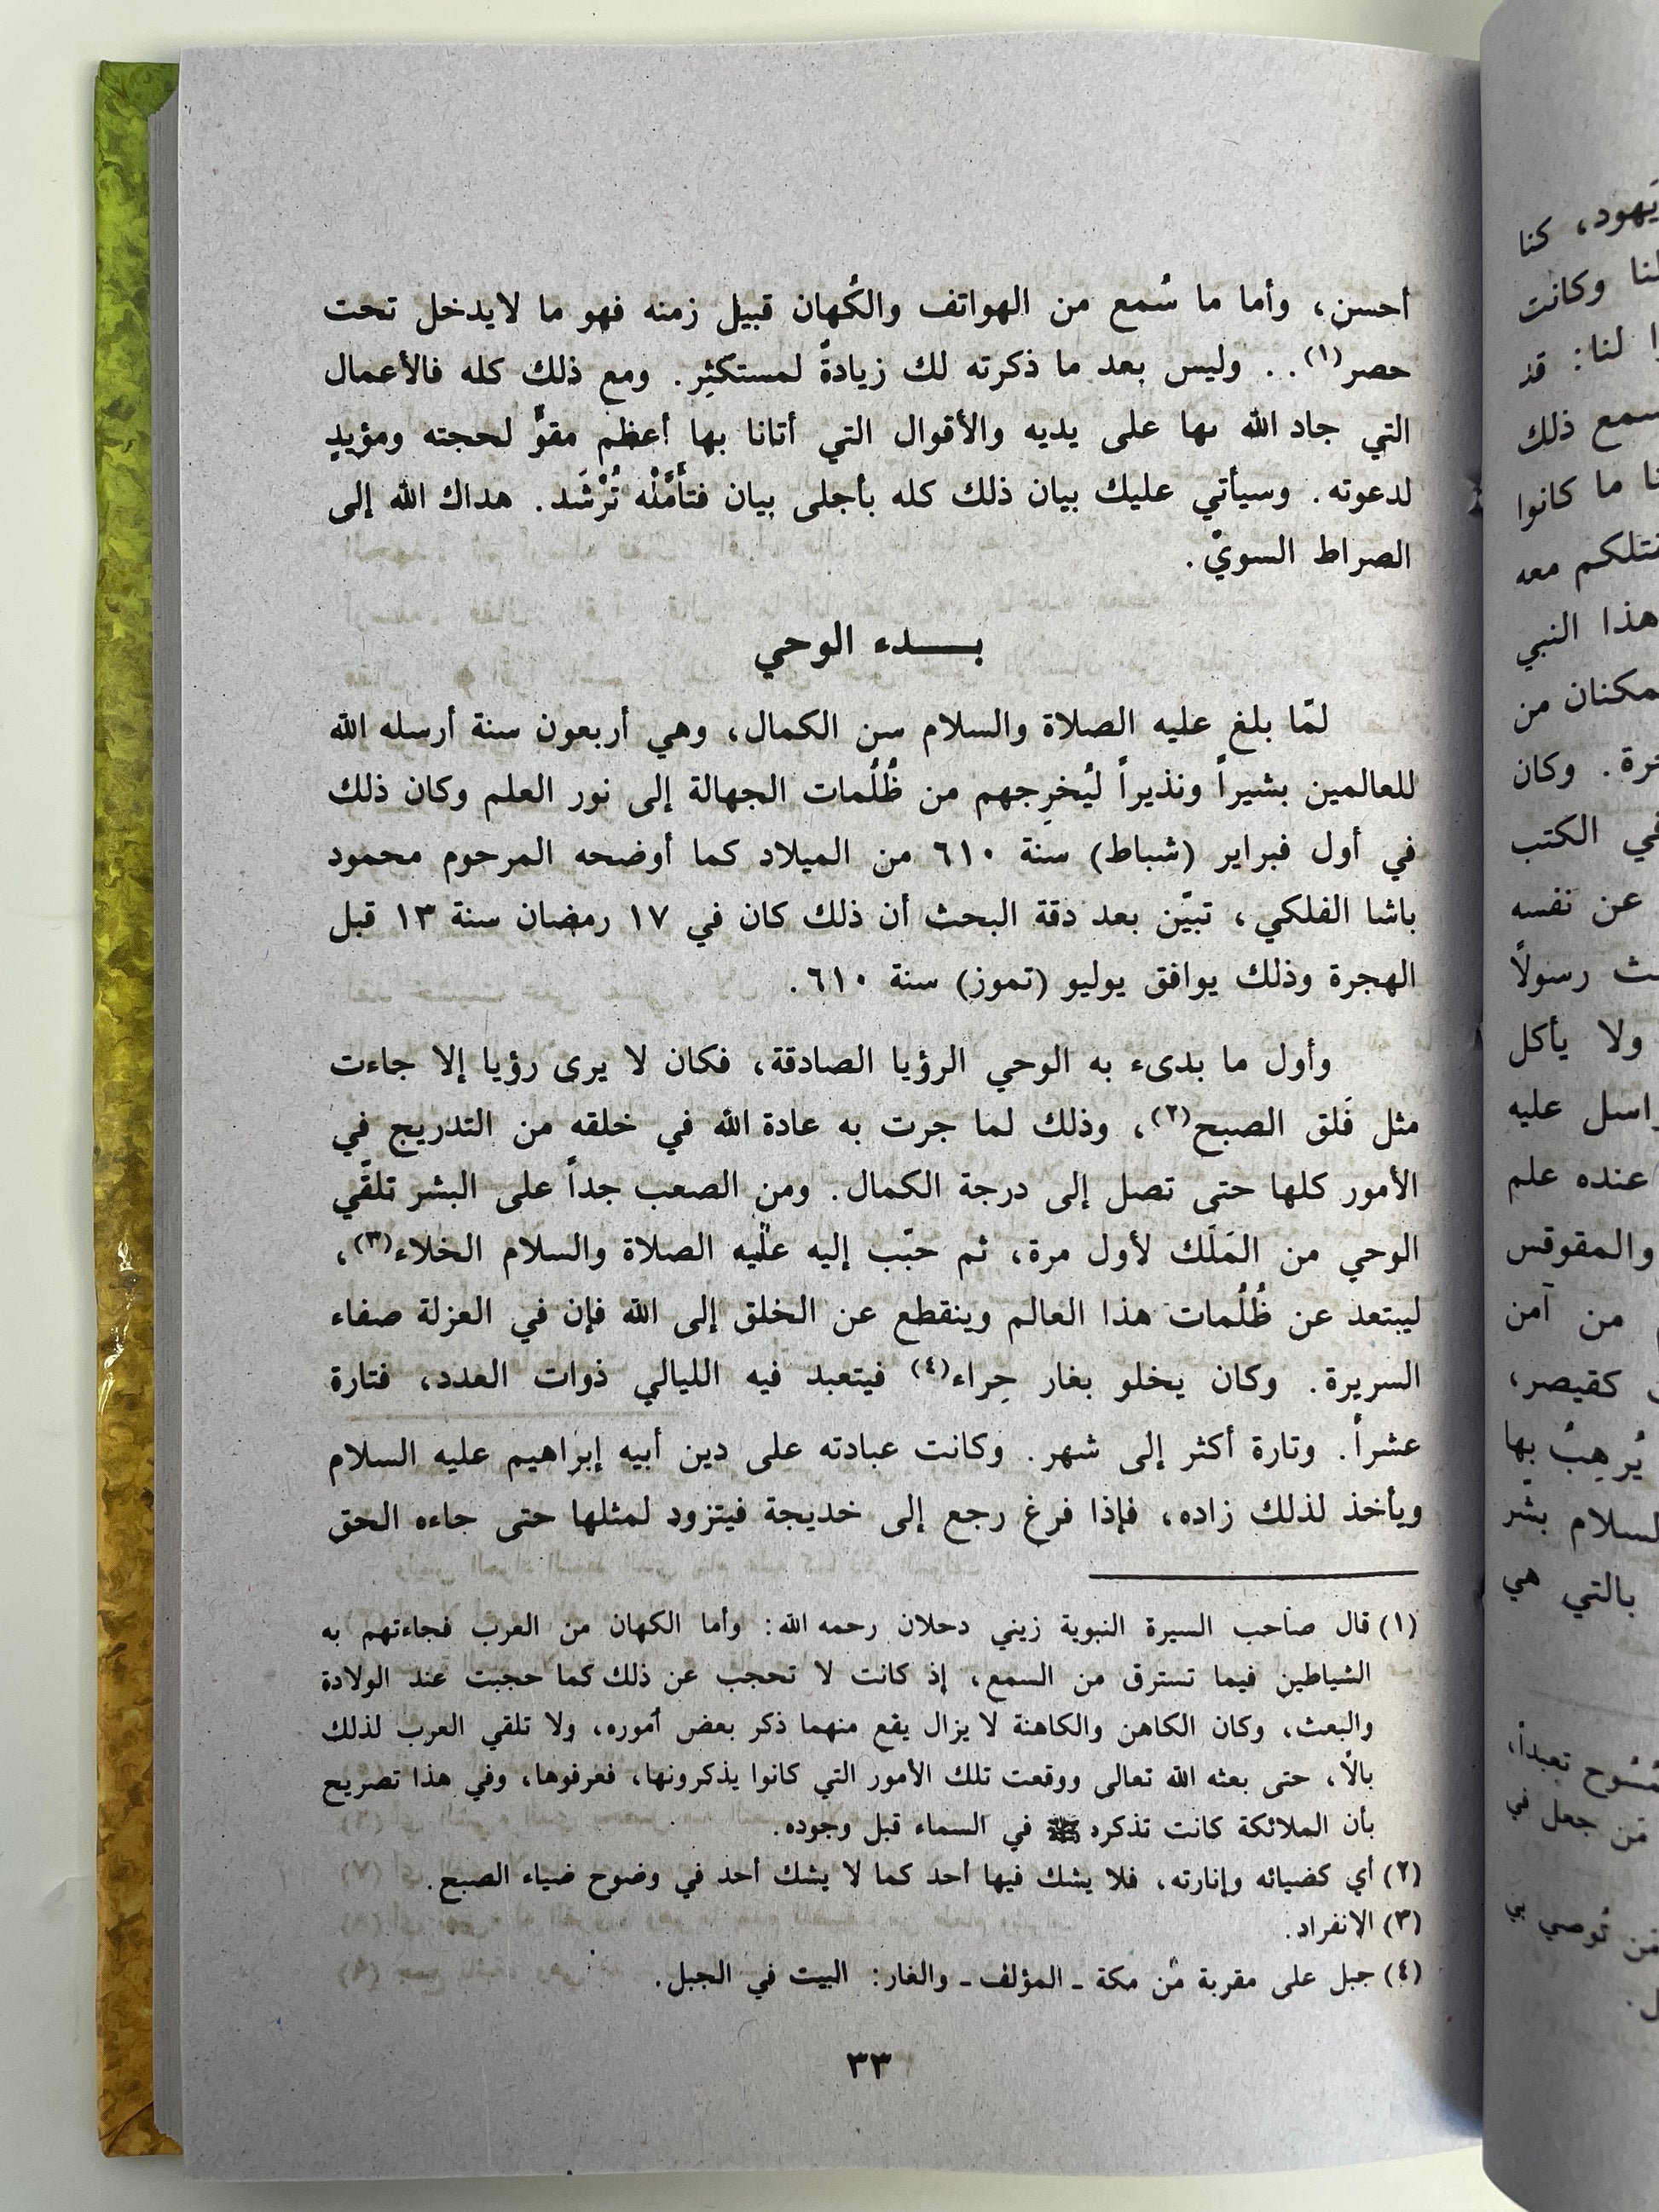 أحسن، وأما ما سُمع من الهواتف والكُهان قبيل زمنه فهو ما لايدخل تحت
حصر(١). . وليس بعد ما ذكرته لك زيادةً لمستكثِر. ومع ذلك كله فالأعمال
التي جاد الله بها على يديه والأقوال التي أتانا بها أعظم مقوٍّ لحجته ومؤيدٍ
لدعوته. وسيأتي عليك بيان ذلك كله بأجلى بيان فتأمَّلْه تُرْشَد. هداك الله إلى
الصراط السويْ.
بـــدء الوحي
لمّا بلغ عليه الصلاة والسلام سن الكمال، وهي أربعون سنة أرسله الله
للعالمين بشيراً ونذيراً ليُخرِجهم من ظُلُمات الجهالة إلى نور العلم وكان ذلك
في أول فبراير (شباط) سنة ٦١٠ من الميلاد كما أوضحه المرحوم محمود
باشا الفلكي، تبيّن بعد دقة البحث أن ذلك كان في ١٧ رمضان سنة ١٣ قبل
الهجرة وذلك يوافق يوليو (تموز) سنة ٦١٠.
وأول ما بدىء به الوحي الرؤيا الصادقة، فكان لا يرى رؤيا إلا جاءت
مثل فَلق الصبح(٢)، وذلك لما جرت به عادة الله في خلقه من التدريج في
الأمور كلها حتى تصل إلى درجة الكمال. ومن الصعب جداً على البشر تلقّي
الوحي من المَلَك لأول مرة، ثم حبّب إليه عليه الصلاة والسلام الخلاء(٣)،
ليبتعد عن ظُلُمات هذا العالم وينقطع عن الخلق إلى الله فإن في العزلة صفاء
السريرة. وكان يخلو بغار حِراء(٤) فيتعبد فيه الليالي ذوات العدد، فتارة
عشراً. وتارة أكثر إلى شهر. وكانت عبادته على دين أبيه إبراهيم عليه السلام
ويأخذ لذلك زاده، فإذا فرغ رجع إلى خديجة فيتزود لمثلها حتى جاءه الحق
(١) قال صاحب السيرة النبوية زيني دحلان رحمه الله: وأما الكهان من العرب فجاءتهم به
الشياطين فيما تسترق من السمع، إذ كانت لا تحجب عن ذلك كما حجبت عند الولادة
والبعث، وكان الكاهن والكاهنة لا يزال يقع منهما ذكر بعض أموره، ولا تلقي العرب لذلك
بالًا، حتى بعثه الله تعالى ووقعت تلك الأمور التي كانوا يذكرونها، فعرفوها، وفي هذا تصريح
بأن الملائكة كانت تذكره ﷺ في السماء قبل وجوده.
(٢) أي كضيائه وإنارته، فلا يشك فيها أحد كما لا يشك أحد في وضوح ضياء الصبح.
(٣) الانفراد.
(٤) جبل على مقربة من مكة ـ المؤلف ـ والغار: البيت في الجبل.
٣٣
يَهود، كنا
لنا وكانت
لنا: قد
سمع ذلك
ما كانوا
معه
هذا النبي
من
وكان
الكتب
عن نفسه
رسولًا
ولا يأكل
عليه
عنده علم
والمقوقس
من آمن
كقيصر،
يُرهِبُ بها
بشّر
بالتي هي
تعبداً،
من جعل في